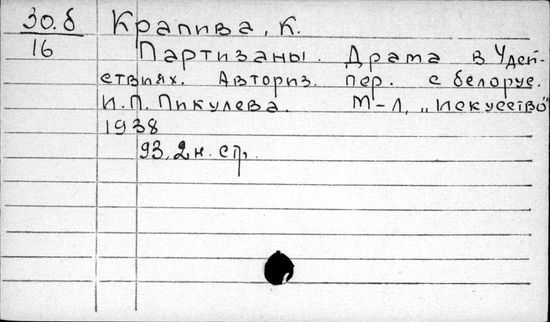 30.б Крапива, К.
16 Партизаны. Драма в 4 дей-
ствиях. Авториз. пер. с белорус.
И.П. Пикулева. М-Л, „Искусство"
1938
93, 2 н. стр.